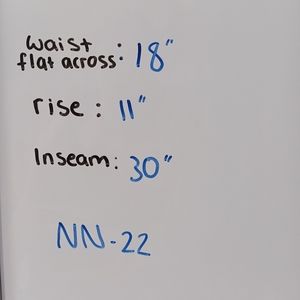 waist
flat across: 18"
rise: 11"
Inseam: 30"
NN-22